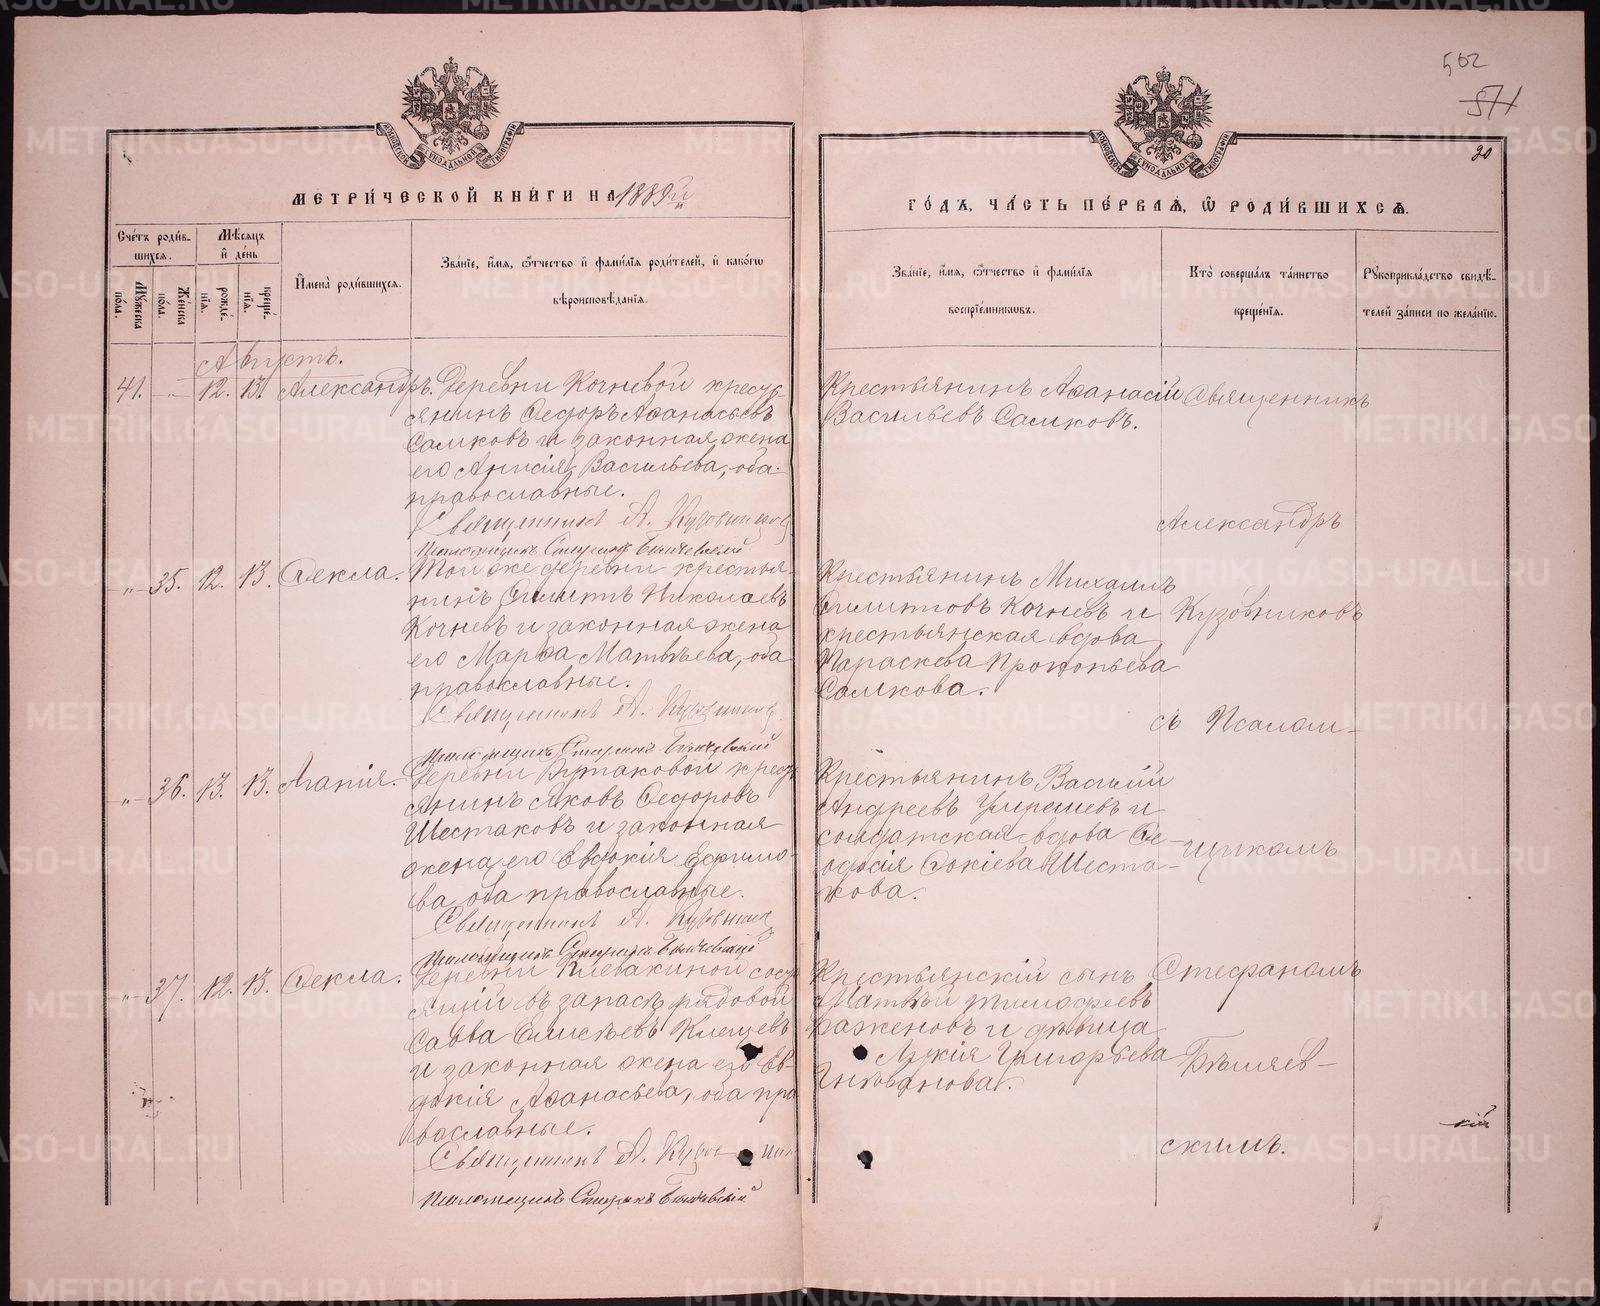 502
571
20
МЕТРИ́ЧЕСКОЙ КНИ́ГИ НА 1889й
ГО́ДЪ, ЧА́СТЬ ПЕ́РВАѦ, Ѡ РОДИ́ВШИХСѦ.
Сче́тъ роди́в-
шихсѧ.
Мѣ́сѧцъ
и҆ де́нь
И҆мена̀ роди́вшихсѧ.
Зва́нїе, и҆́мѧ, ѻ҆́тчество и҆ фами́лїѧ роди́телей, и҆ како́гѡ
вѣроисповѣ́данїѧ.
Мꙋ́жеска
по́ла.
Же́нска
по́ла.
рожде́-
нїѧ.
креще́-
нїѧ.
Зва́нїе, и҆́мѧ, ѻ҆́тчество и҆ фами́лїѧ
воспрїе́мникѡвъ.
Кто̀ соверша́лъ та́инство
креще́нїѧ.
Рꙋкоприкла́дство свидѣ́-
телей за́писи по жела́нїю.
Августъ.
41. - „ - 12. 13. Александръ. Деревни Кочневой кресть-
янинъ Ѳедоръ Аѳанасьевъ
Самковъ и законная жена
его Анисія Васильева, оба
православные.
Священникъ А. Кузовниковъ
Псаломщикъ Стефанъ Бѣляевскій
Крестьянинъ Аѳанасій
Васильевъ Самковъ.
Священникъ
Александръ
- „ - 35. 12. 13. Ѳекла. Той же деревни крестья-
нинъ Филиппъ Николаевъ
Кочневъ и законная жена
его Марѳа Матвѣева, оба
православные.
Священникъ А. Кузовниковъ
Псаломщикъ Стефанъ Бѣляевскій
Крестьянинъ Михаилъ
Филипповъ Кочневъ и
крестьянская вдова
Параскева Прокопьева
Самкова.
Кузовниковъ
съ Псалом-
- „ - 36. 13. 13. Агапія. Деревни Бутаковой кресть
янинъ Яковъ Ѳедоровъ
Шестаковъ и законная
жена его Евдокія Ефимо-
ва, оба православные.
Священникъ А. Кузовников
Псаломщикъ Стефанъ Бѣляевскій
Крестьянинъ Василій
Андреевъ и
солдатская вдова Ѳе-
одосія Фокіева Шеста-
кова.
щикомъ
- „ - 37. 12. 13. Ѳекла. Деревни Клевакиной сост
ящій въ запасѣ рядовой
Савва Елисѣевъ Клещевъ
и законная жена его Ев-
докія Аѳанасьева, оба пра
вославные.
Священникъ А. Кузовник
Псаломщикъ Стефанъ Бѣляевскій
Крестьянскій сынъ
Матвѣй Тимофеевъ
Баженовъ и дѣвица
Лукія Григорьева
Стефаномъ
Бѣляев-
скимъ.
кій